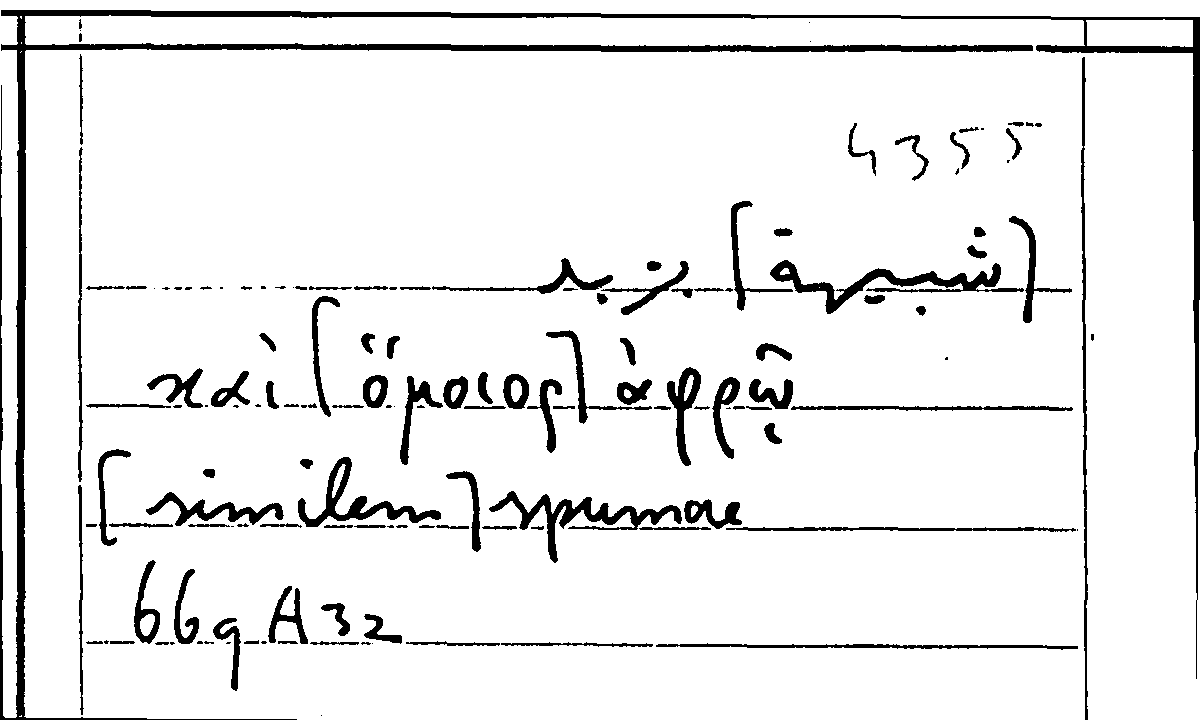 4355
[شبيهة] بزبد
καὶ [ὅμοιος] ἀφρῷ
[similem] spumae
669 A32